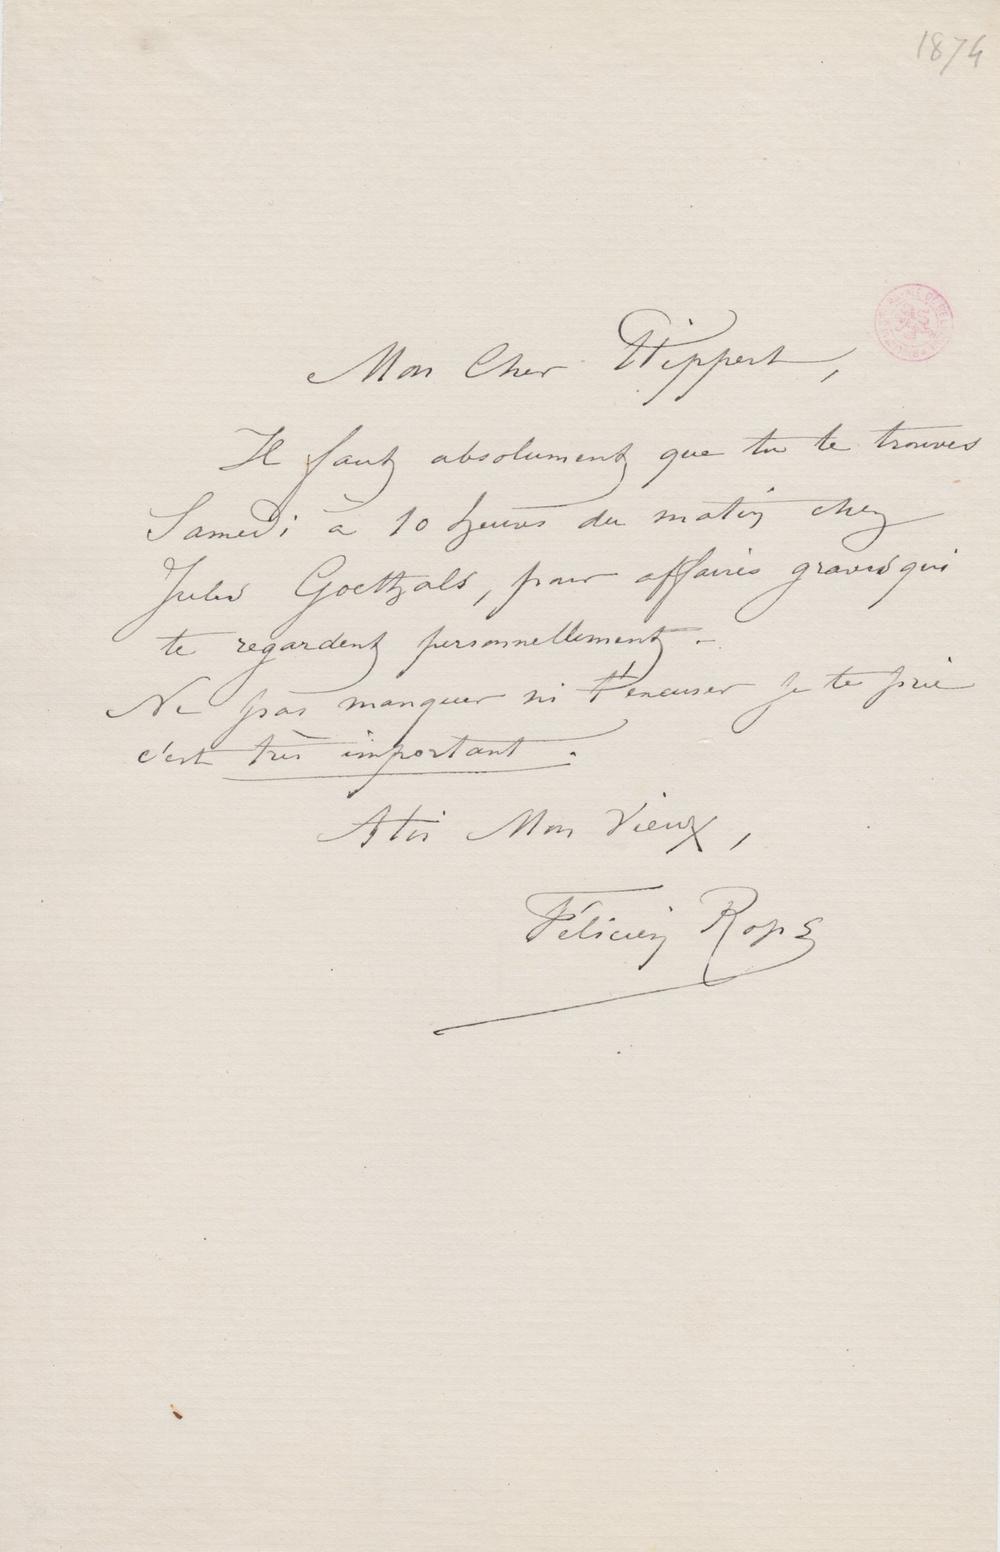 1874
Mon Cher Wippert,
Il faut absolument que tu te trouves
Samedi à 10 heures du matin chez
Jules Goethals, pour affaires graves qui
te regardent personnellement. –
Ne pas manquer ni t'excuser je te prie
c'est très important.
A toi Mon Vieux,
Félicien Rops